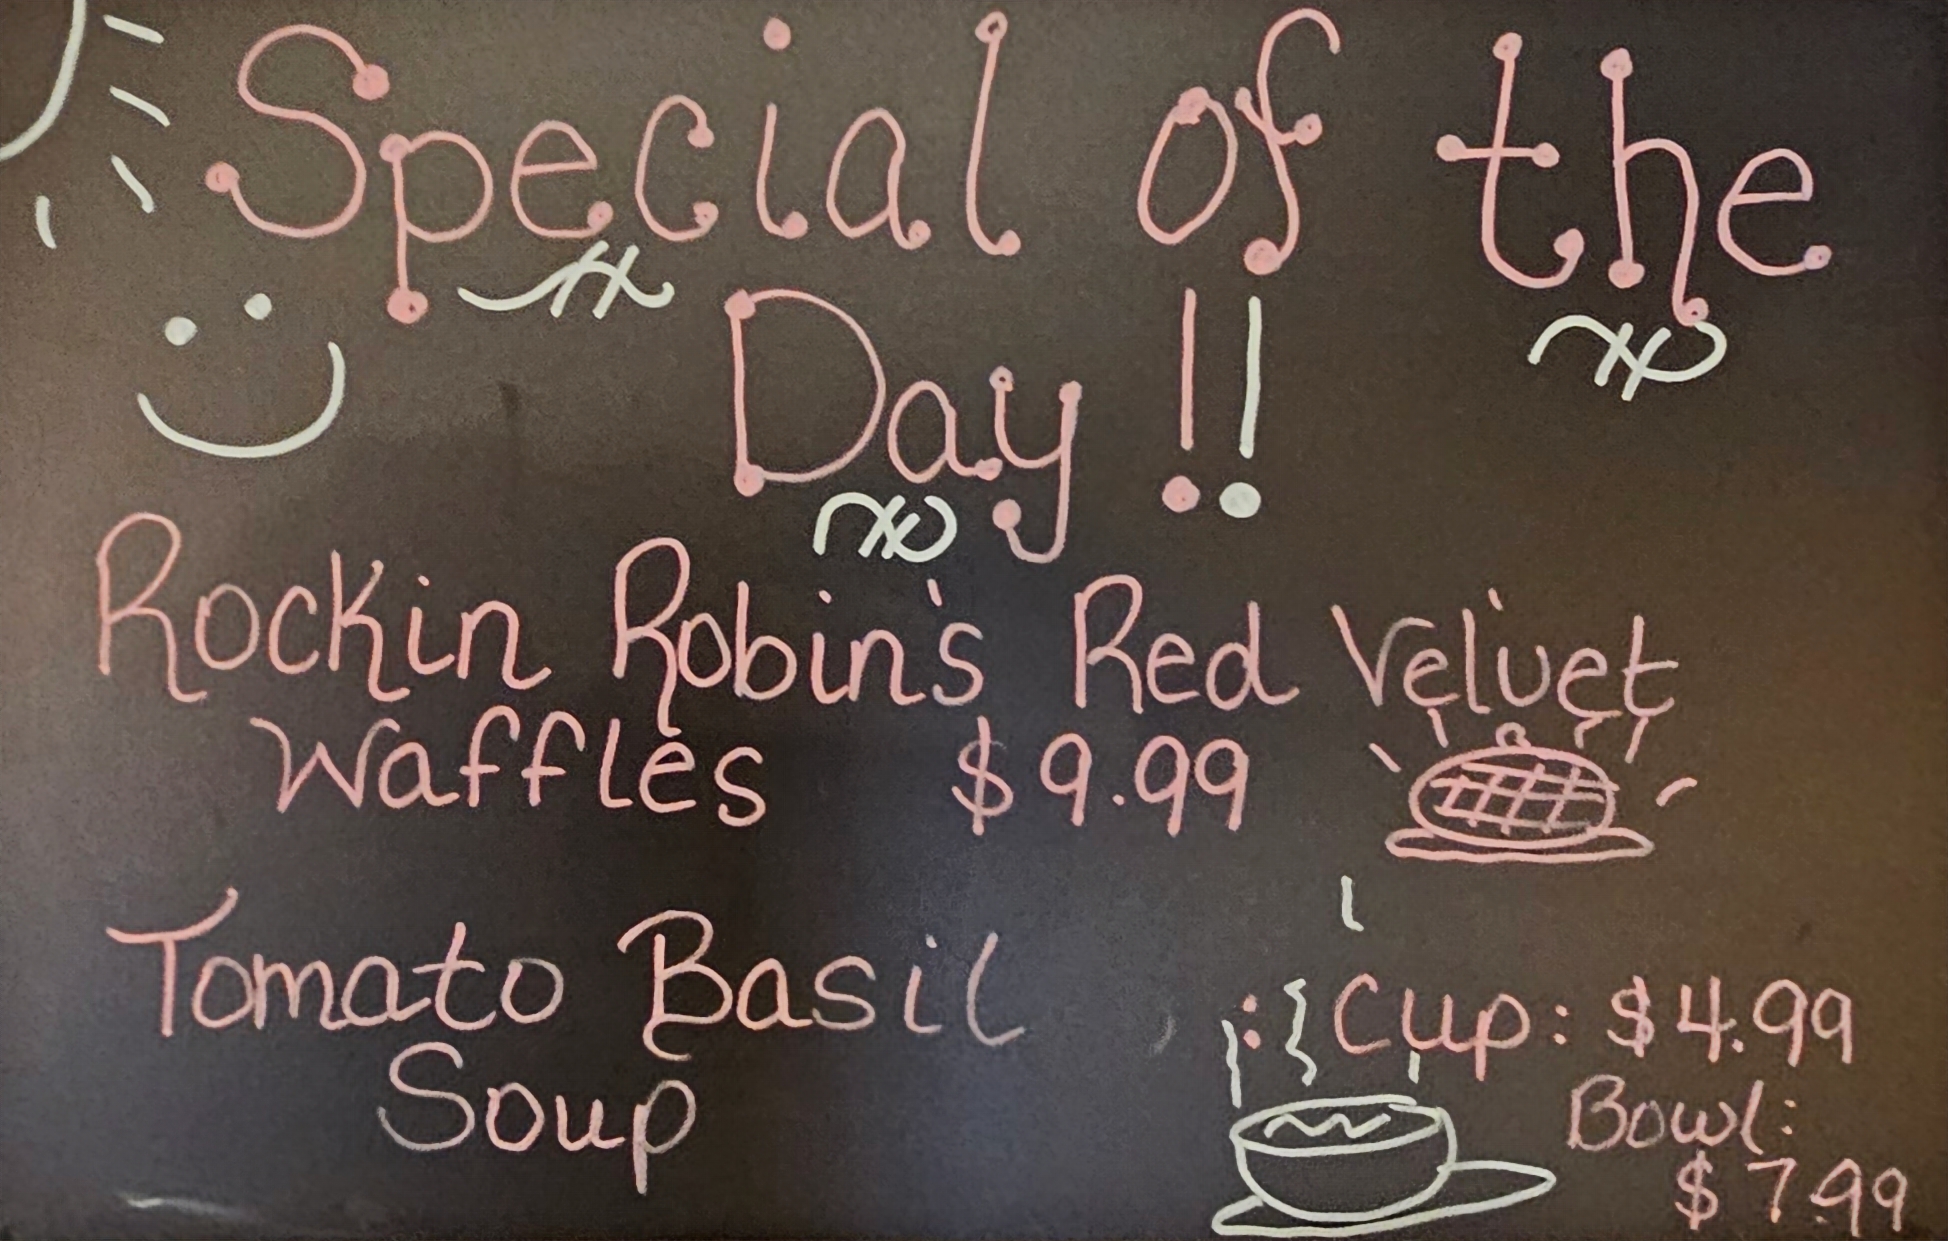 Special of the
Day !!
Rockin Robin's Red Velvet
Waffles $9.99
Tomato Basil : Cup: $4.99
Soup Bowl:
$7.99